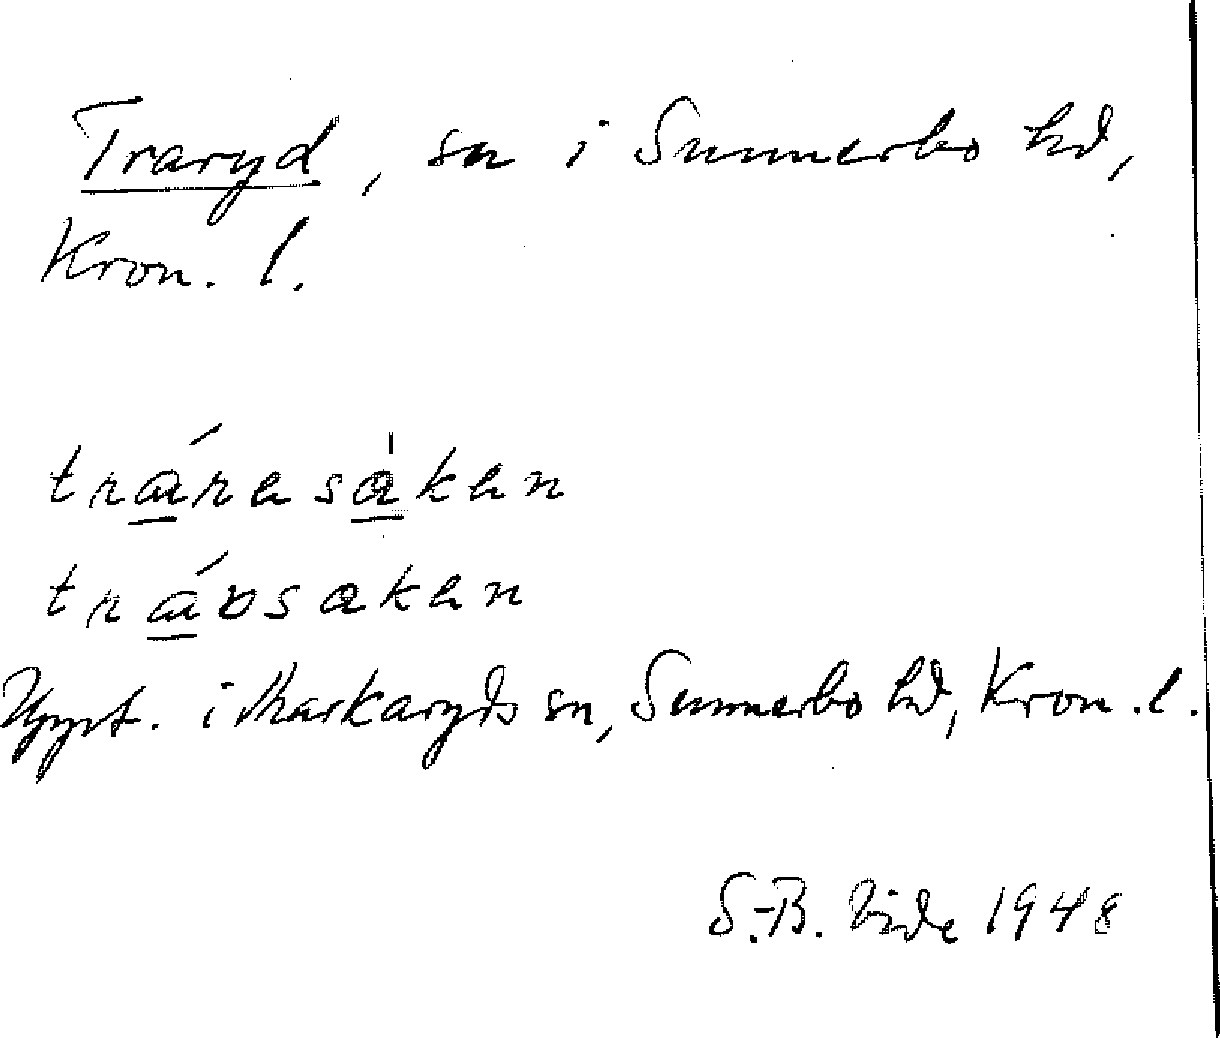 Traryd, sn i Sunnerbo hd,
Kron. l.
tráresàken
trábsaken
Uppt. i Markaryds sn, Sunnerbo hd, Kron. l.
S.-B. Vide 1948